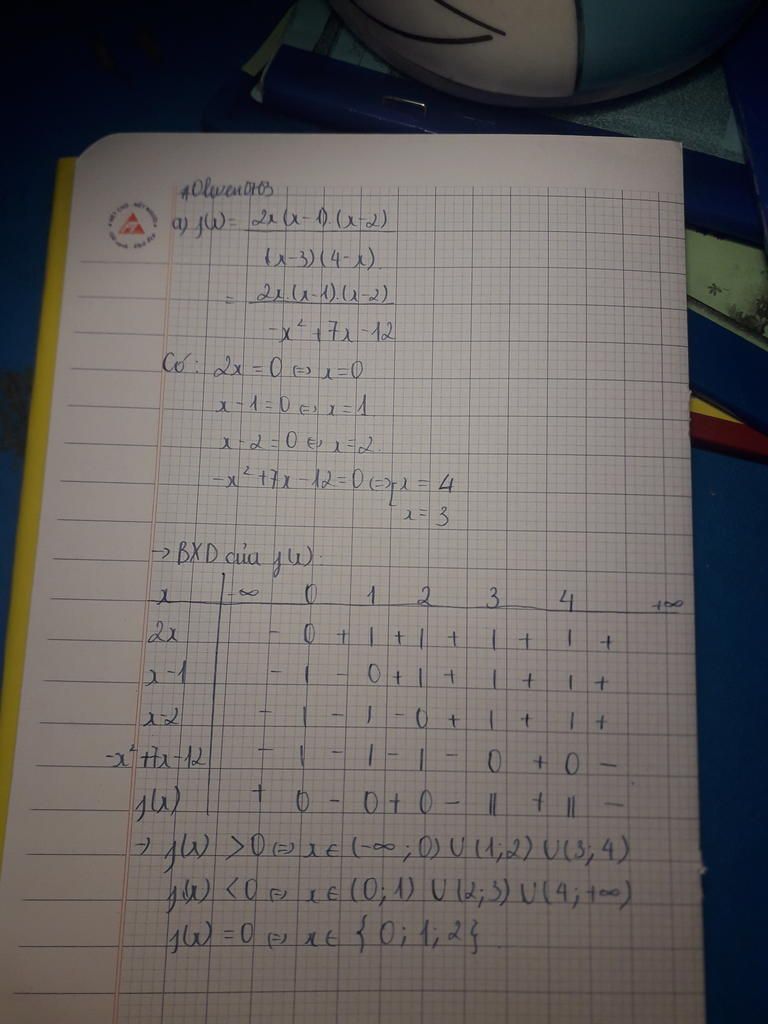 a) f(x) = 2x(x-1).(x-2)
(x-3)(4-x).
= 2x.(x-1).(x-2)
-x² + 7x - 12
Có: 2x = 0 ⇔ x = 0
x - 1 = 0 ⇔ x = 1
x - 2 = 0 ⇔ x = 2.
-x² + 7x - 12 = 0 ⇔ [ x = 4
x = 3
→ BXD của f(x):
x | -∞ 0 1 2 3 4 +∞
2x | - 0 + | + | + | + | +
x-1 | - | - 0 + | + | + | +
x-2 | - | - | - 0 + | + | +
-x²+7x-12 | - | - | - | - 0 + 0 -
f(x) | + 0 - 0 + 0 - || + || -
→ f(x) > 0 ⇔ x ∈ (-∞; 0) ∪ (1; 2) ∪ (3; 4)
f(x) < 0 ⇔ x ∈ (0; 1) ∪ (2; 3) ∪ (4; +∞)
f(x) = 0 ⇔ x ∈ { 0; 1; 2}.